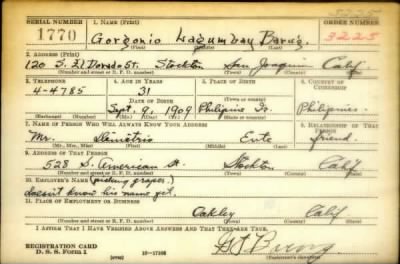 3225
SERIAL NUMBER 1. NAME (Print)
1770 Gorgonio Lagumbay Barug. 3225
(First) (Middle) (Last)
2. ADDRESS (Print)
120 S. El Dorado St. Stockton San Joaquin Calif
(Number and street or R. F. D. number) (Town) (County) (State)
3. TELEPHONE 4. AGE IN YEARS 5. PLACE OF BIRTH 6. COUNTRY OF CITIZENSHIP
4-4785 31 Philipine Is.
DATE OF BIRTH
Sept. 9, 1909 Philipines.
(Exchange) (Number) (Mo.) (Day) (Yr.) (State or country)
7. NAME OF PERSON WHO WILL ALWAYS KNOW YOUR ADDRESS 8. RELATIONSHIP OF THAT PERSON
Mr. Dimitrio friend.
(Mr., Mrs., Miss) (First) (Middle) (Last)
9. ADDRESS OF THAT PERSON
528 S. American St. Stockton Calif
(Number and street or R. F. D. number) (Town) (County) (State)
10. EMPLOYER'S NAME (picking grapes)
doesn't know his name yet.
11. PLACE OF EMPLOYMENT OR BUSINESS
Oakley Calif
(Number and street or R. F. D. number) (Town) (County) (State)
I AFFIRM THAT I HAVE VERIFIED ABOVE ANSWERS AND THAT THEY ARE TRUE.
REGISTRATION CARD
D. S. S. Form 1 (over) 16-17105